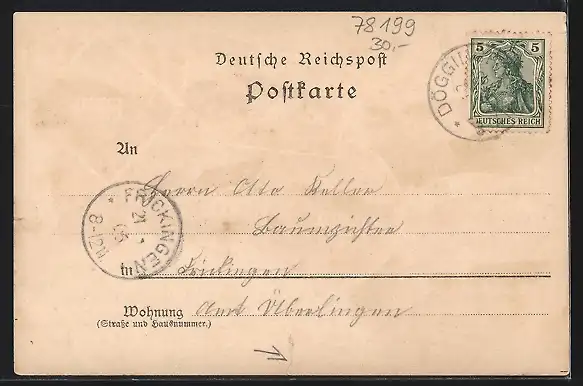 78199
30,-
Deutsche Reichspost
Postkarte
5 5
DEUTSCHES REICH
* DÖGGI
An
Herrn Otto Keller
Baumzüchter
in Frickingen
Wohnung Amt Überlingen
(Straße und Hausnummer.)
* FRICKINGEN
21
05
8-12V